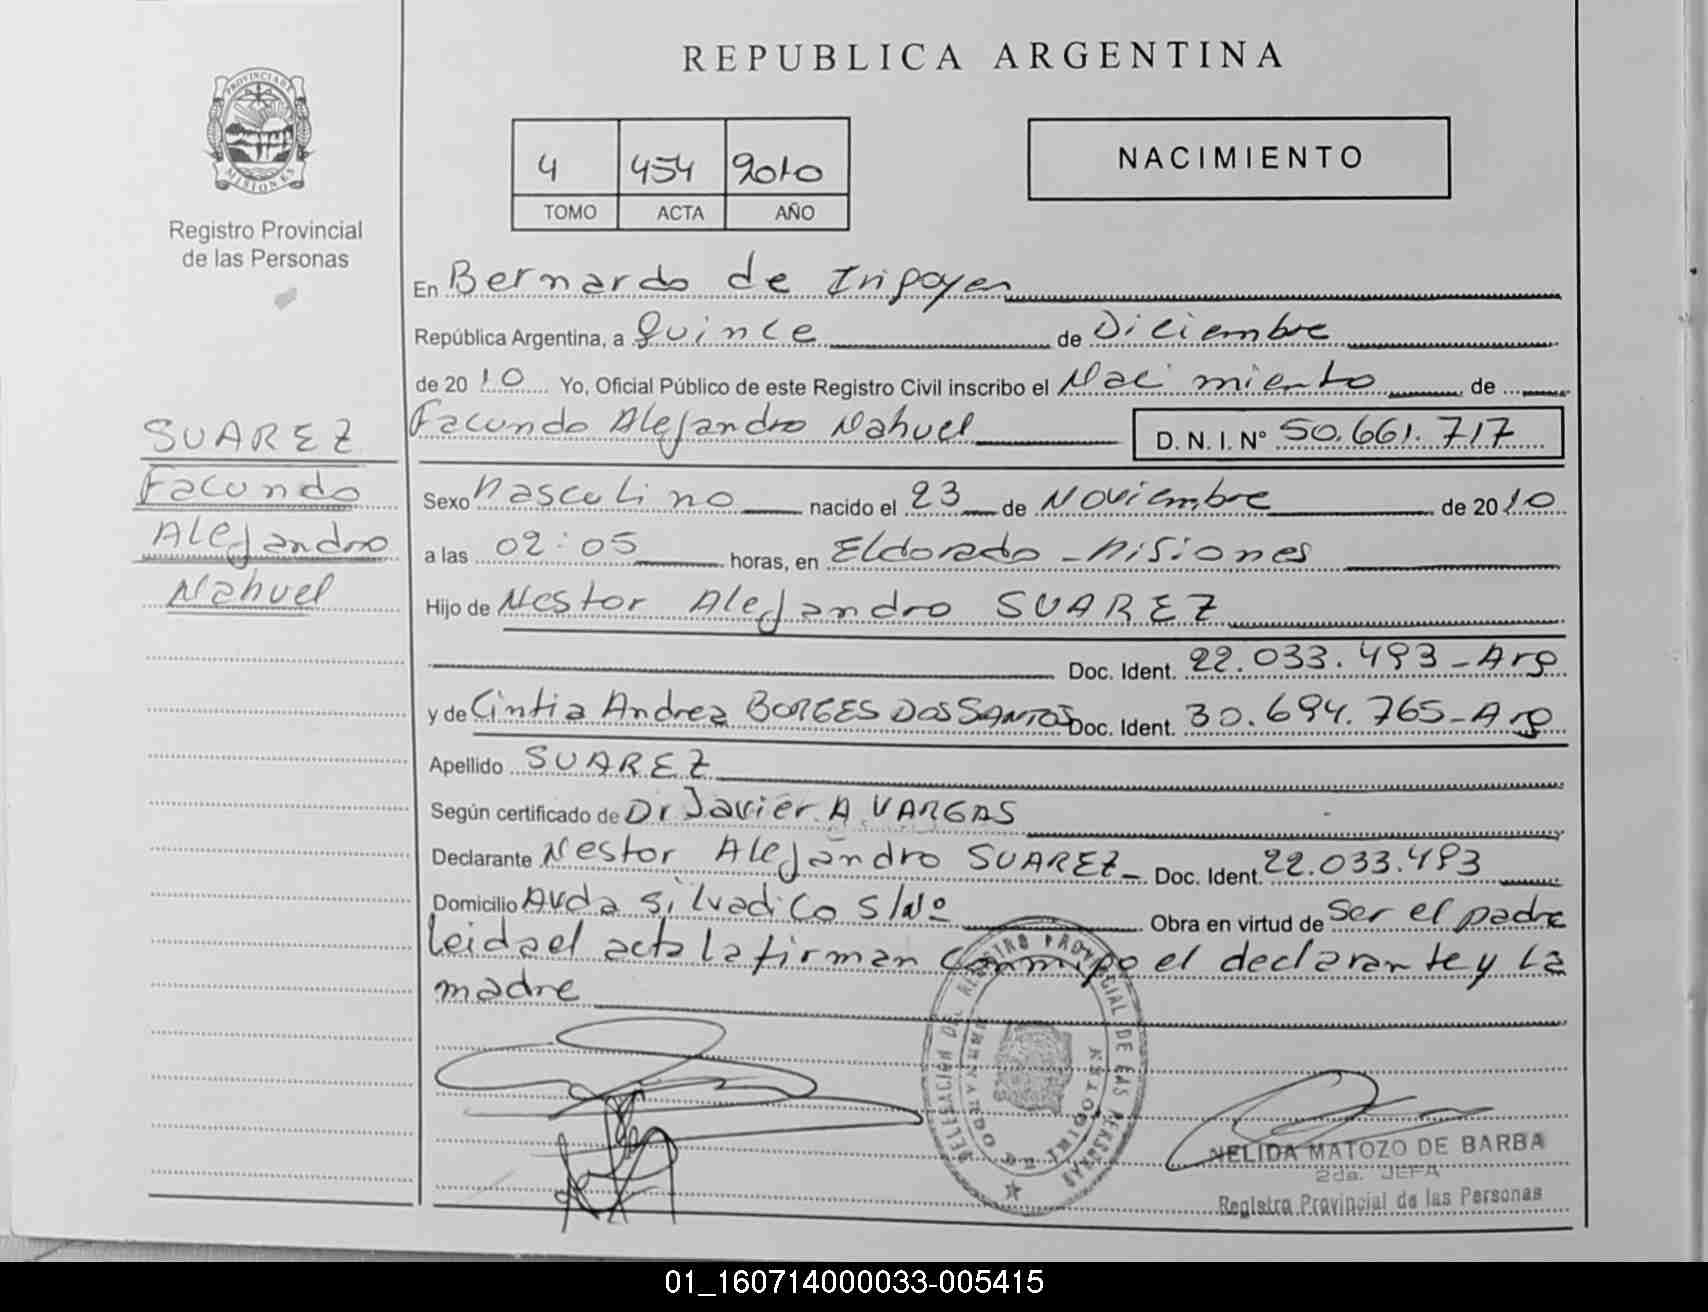 REPUBLICA ARGENTINA
PROVINCIA DE
MISIONES
Registro Provincial
de las Personas
4 454 2010
TOMO ACTA AÑO
NACIMIENTO
En Bernardo de Irigoyen
República Argentina, a Quince de Diciembre
de 2010 Yo, Oficial Público de este Registro Civil inscribo el Nacimiento de
Facundo Alejandro Nahuel D. N. I. N° 50.661.717
SUAREZ
Facundo
Alejandro
Nahuel
Sexo Masculino nacido el 23 de Noviembre de 2010
a las 02:05 horas, en Eldorado - Misiones
Hijo de Nestor Alejandro SUAREZ
Doc. Ident. 22.033.493 - Arg
y de Cintia Andrea BORGES DOS SANTOS Doc. Ident. 30.694.765 - Arg
Apellido SUAREZ
Según certificado de Dr Javier A VARGAS
Declarante Nestor Alejandro SUAREZ Doc. Ident. 22.033.493
Domicilio Avda Silvadico S/Nº Obra en virtud de Ser el padre
Leida el acta la firman conmigo el declarante y la
madre
DELEGACION DEL REGISTRO PROVINCIAL DE LAS PERSONAS
NELIDA MATOZO DE BARBA
2da. JEFA
Registro Provincial de las Personas
01_160714000033-005415